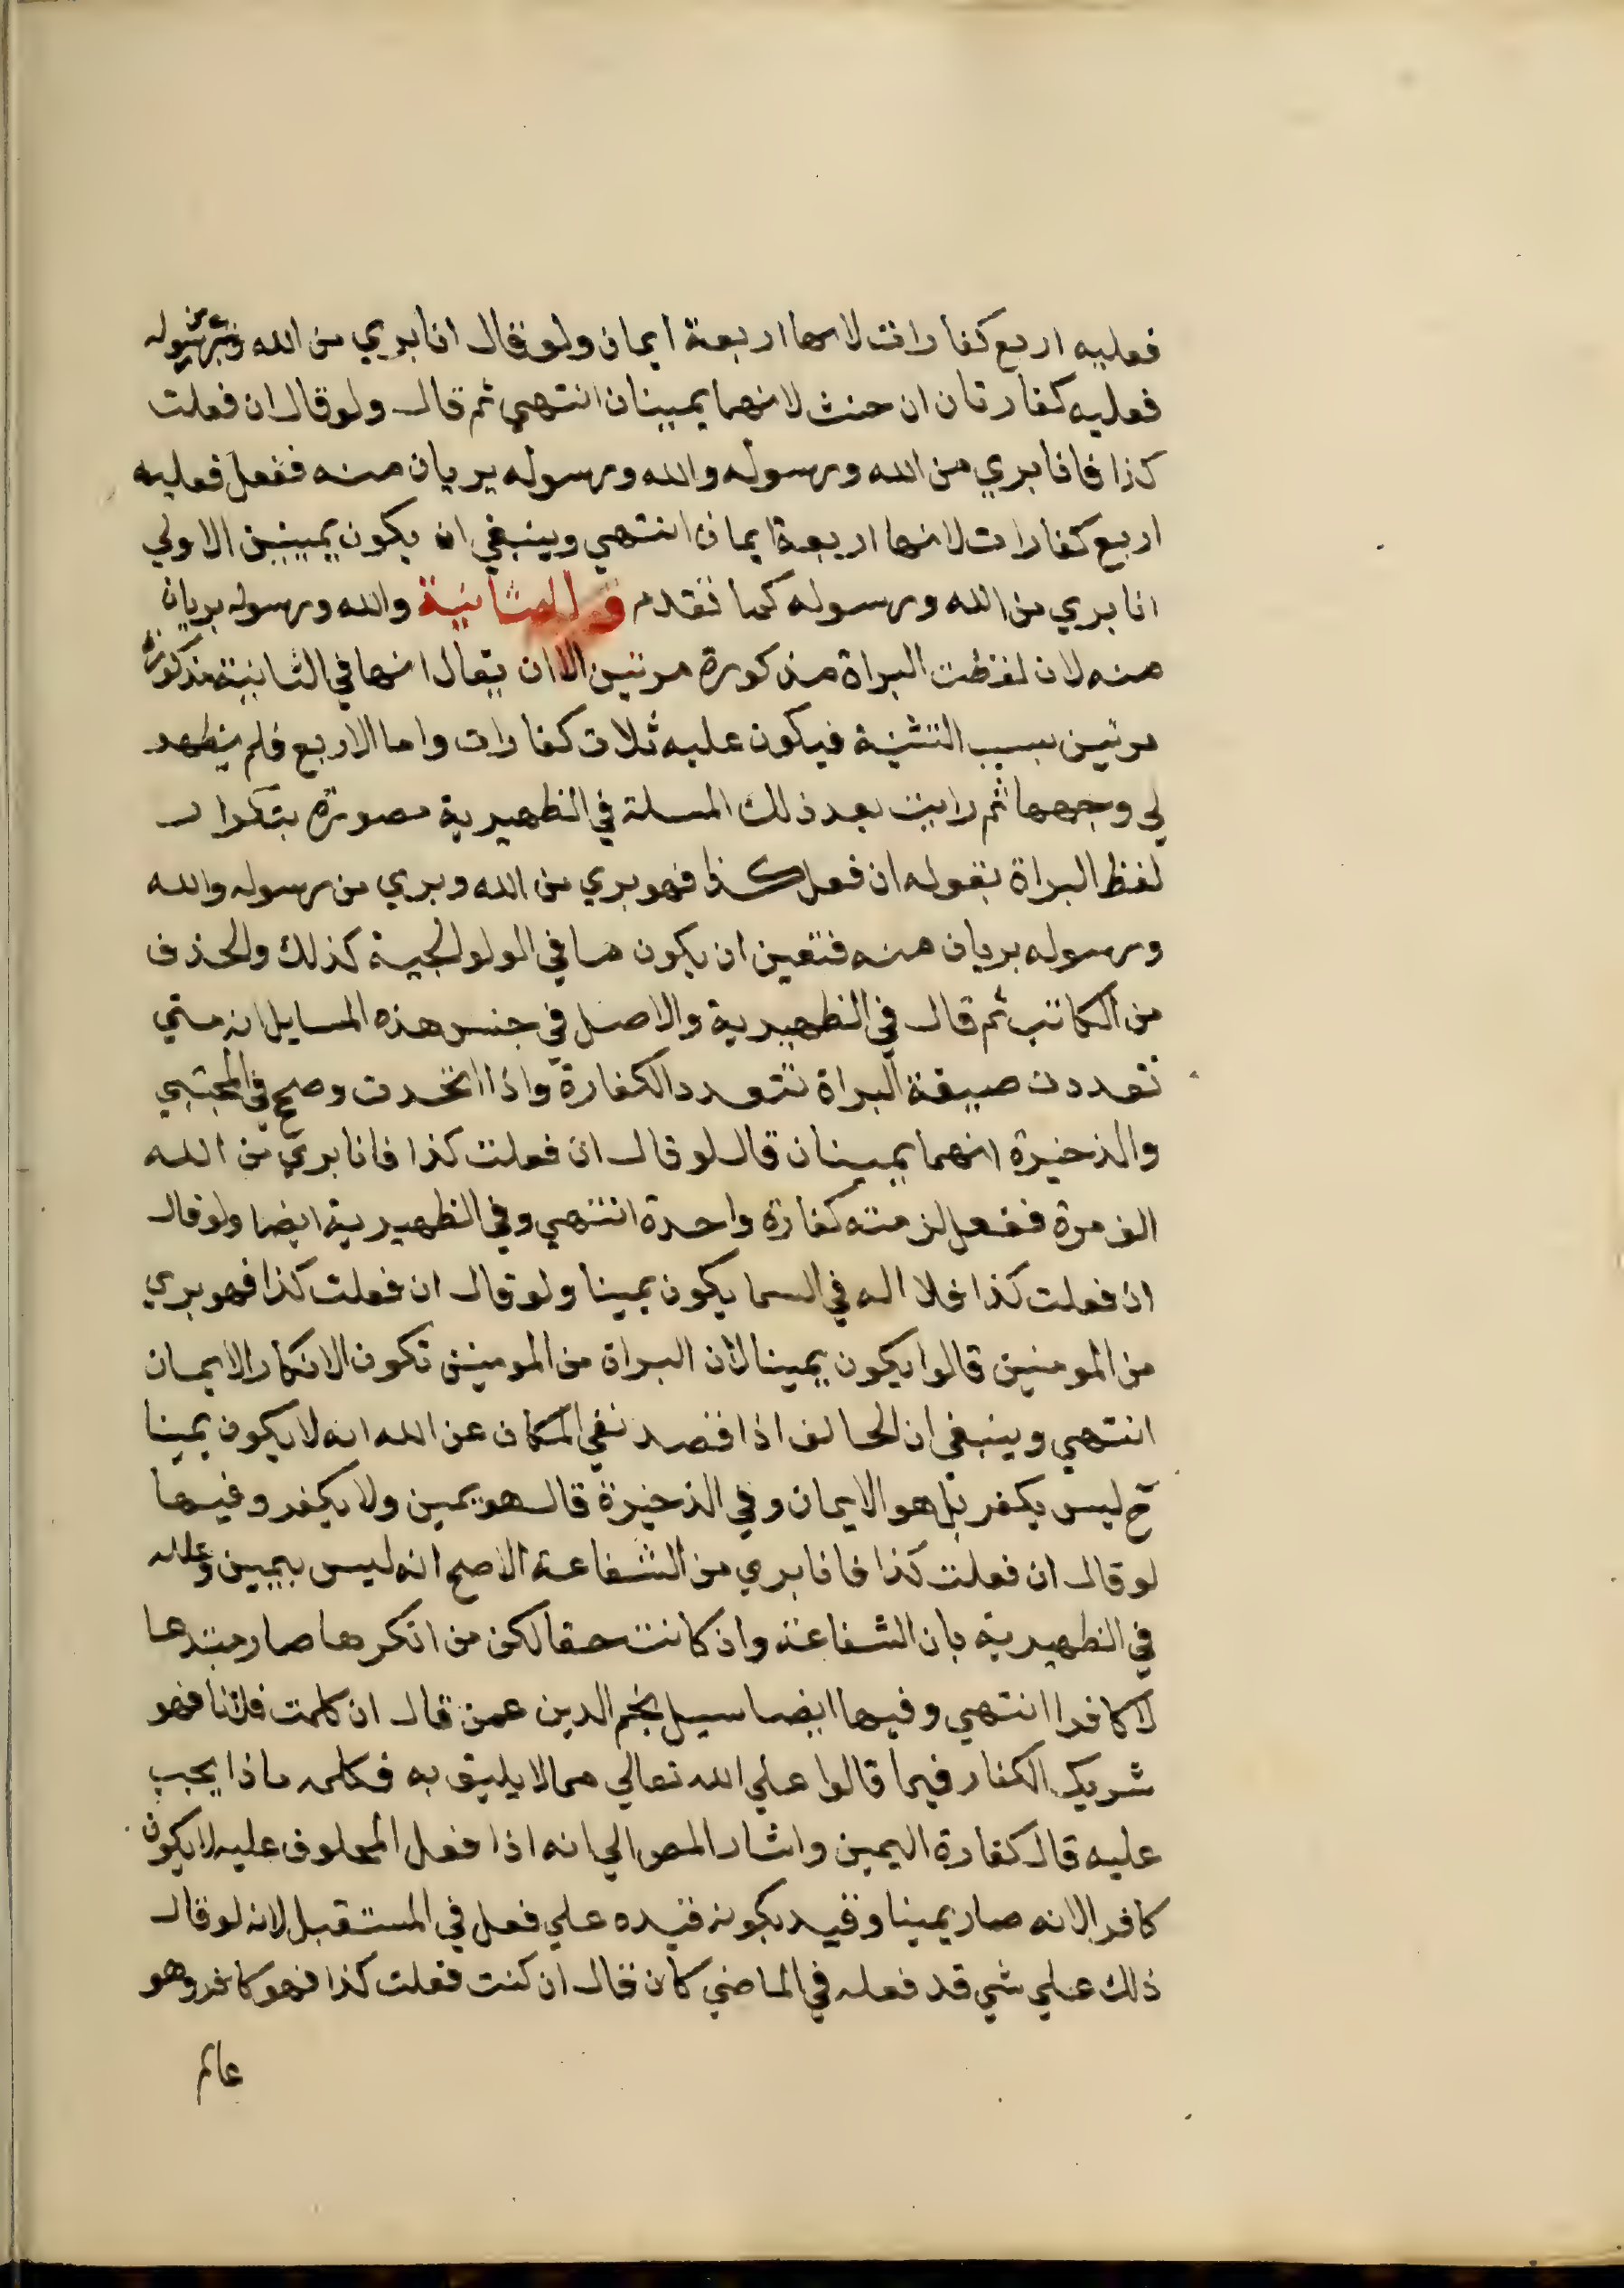 فعليه اربع كفارات لانها اربعة ايمان ولو قال انا بري من الله ومن رسوله
فعليه كفارتان ان حنث لانهما يمينان انتهي ثم قال ولو قال ان فعلت
كذا فانا بري من الله ورسوله والله ورسوله بريان منه ففعل فعليه
اربع كفارات لانها اربعة ايمان انتهي وينبغي ان يكون يمينين الاولي
انا بري من الله ورسوله كما تقدم والثانية والله ورسوله بريان
منه لان لفظت البراة مذكورة مرتين الا ان يقال انها في الثانية مذكورة
مرتين بسبب التثنية فيكون عليه ثلاث كفارات واما الاربع فلم يظهر
لي وجهها ثم رايت بعد ذلك المسلة في الظهيرية مصورة بتكرار
لفظ البراة بقوله ان فعل كذا فهو بري من الله وبري من رسوله والله
ورسوله بريان منه فتعين ان يكون ما في الولوالجية كذلك والحذف
من الكاتب ثم قال في الظهيرية والاصل في جنس هذه المسايل انه متي
تعددت صيغة البراة تتعدد الكفارة واذا اتحدت وصحح في المجتبي
والذخيرة انهما يمينان قال لو قال ان فعلت كذا فانا بري من الله
الف مرة ففعل لزمته كفارة واحدة انتهي وفي الظهيرية ايضا ولو قال
ان فعلت كذا فلا اله في السما يكون يمينا ولو قال ان فعلت كذا فهو بري
من المومنين قالوا يكون يمينا لان البراة من المومنين تكون لانكار الايمان
انتهي وينبغي ان الحالف اذا قصد نفي المكان عن الله انه لا يكون يمينا
ح ليس بكفر بل هو الايمان وفي الذخيرة قال هو يمين ولا يكفر وفيها
لو قال ان فعلت كذا فانا بري من الشفاعة الاصح انه ليس بيمين وعلله
في الظهيرية بان الشفاعة وان كانت حقا لكن من انكرها صار مبتدعا
لا كافرا انتهي وفيها ايضا سيل نجم الدين عمن قال ان كلمت فلانا فهو
شريك الكفار فيما قالوا علي الله تعالي مما لا يليق به فكلمه ماذا يجب
عليه قال كفارة اليمين واشار المص الي انه اذا فعل المحلوف عليه لا يكون
كافرا لانه صار يمينا وقيد بكونه قيده علي فعل في المستقبل لانه لو قال
ذلك علي شي قد فعله في الماضي كان قال ان كنت فعلت كذا فهو كافر وهو
عالم